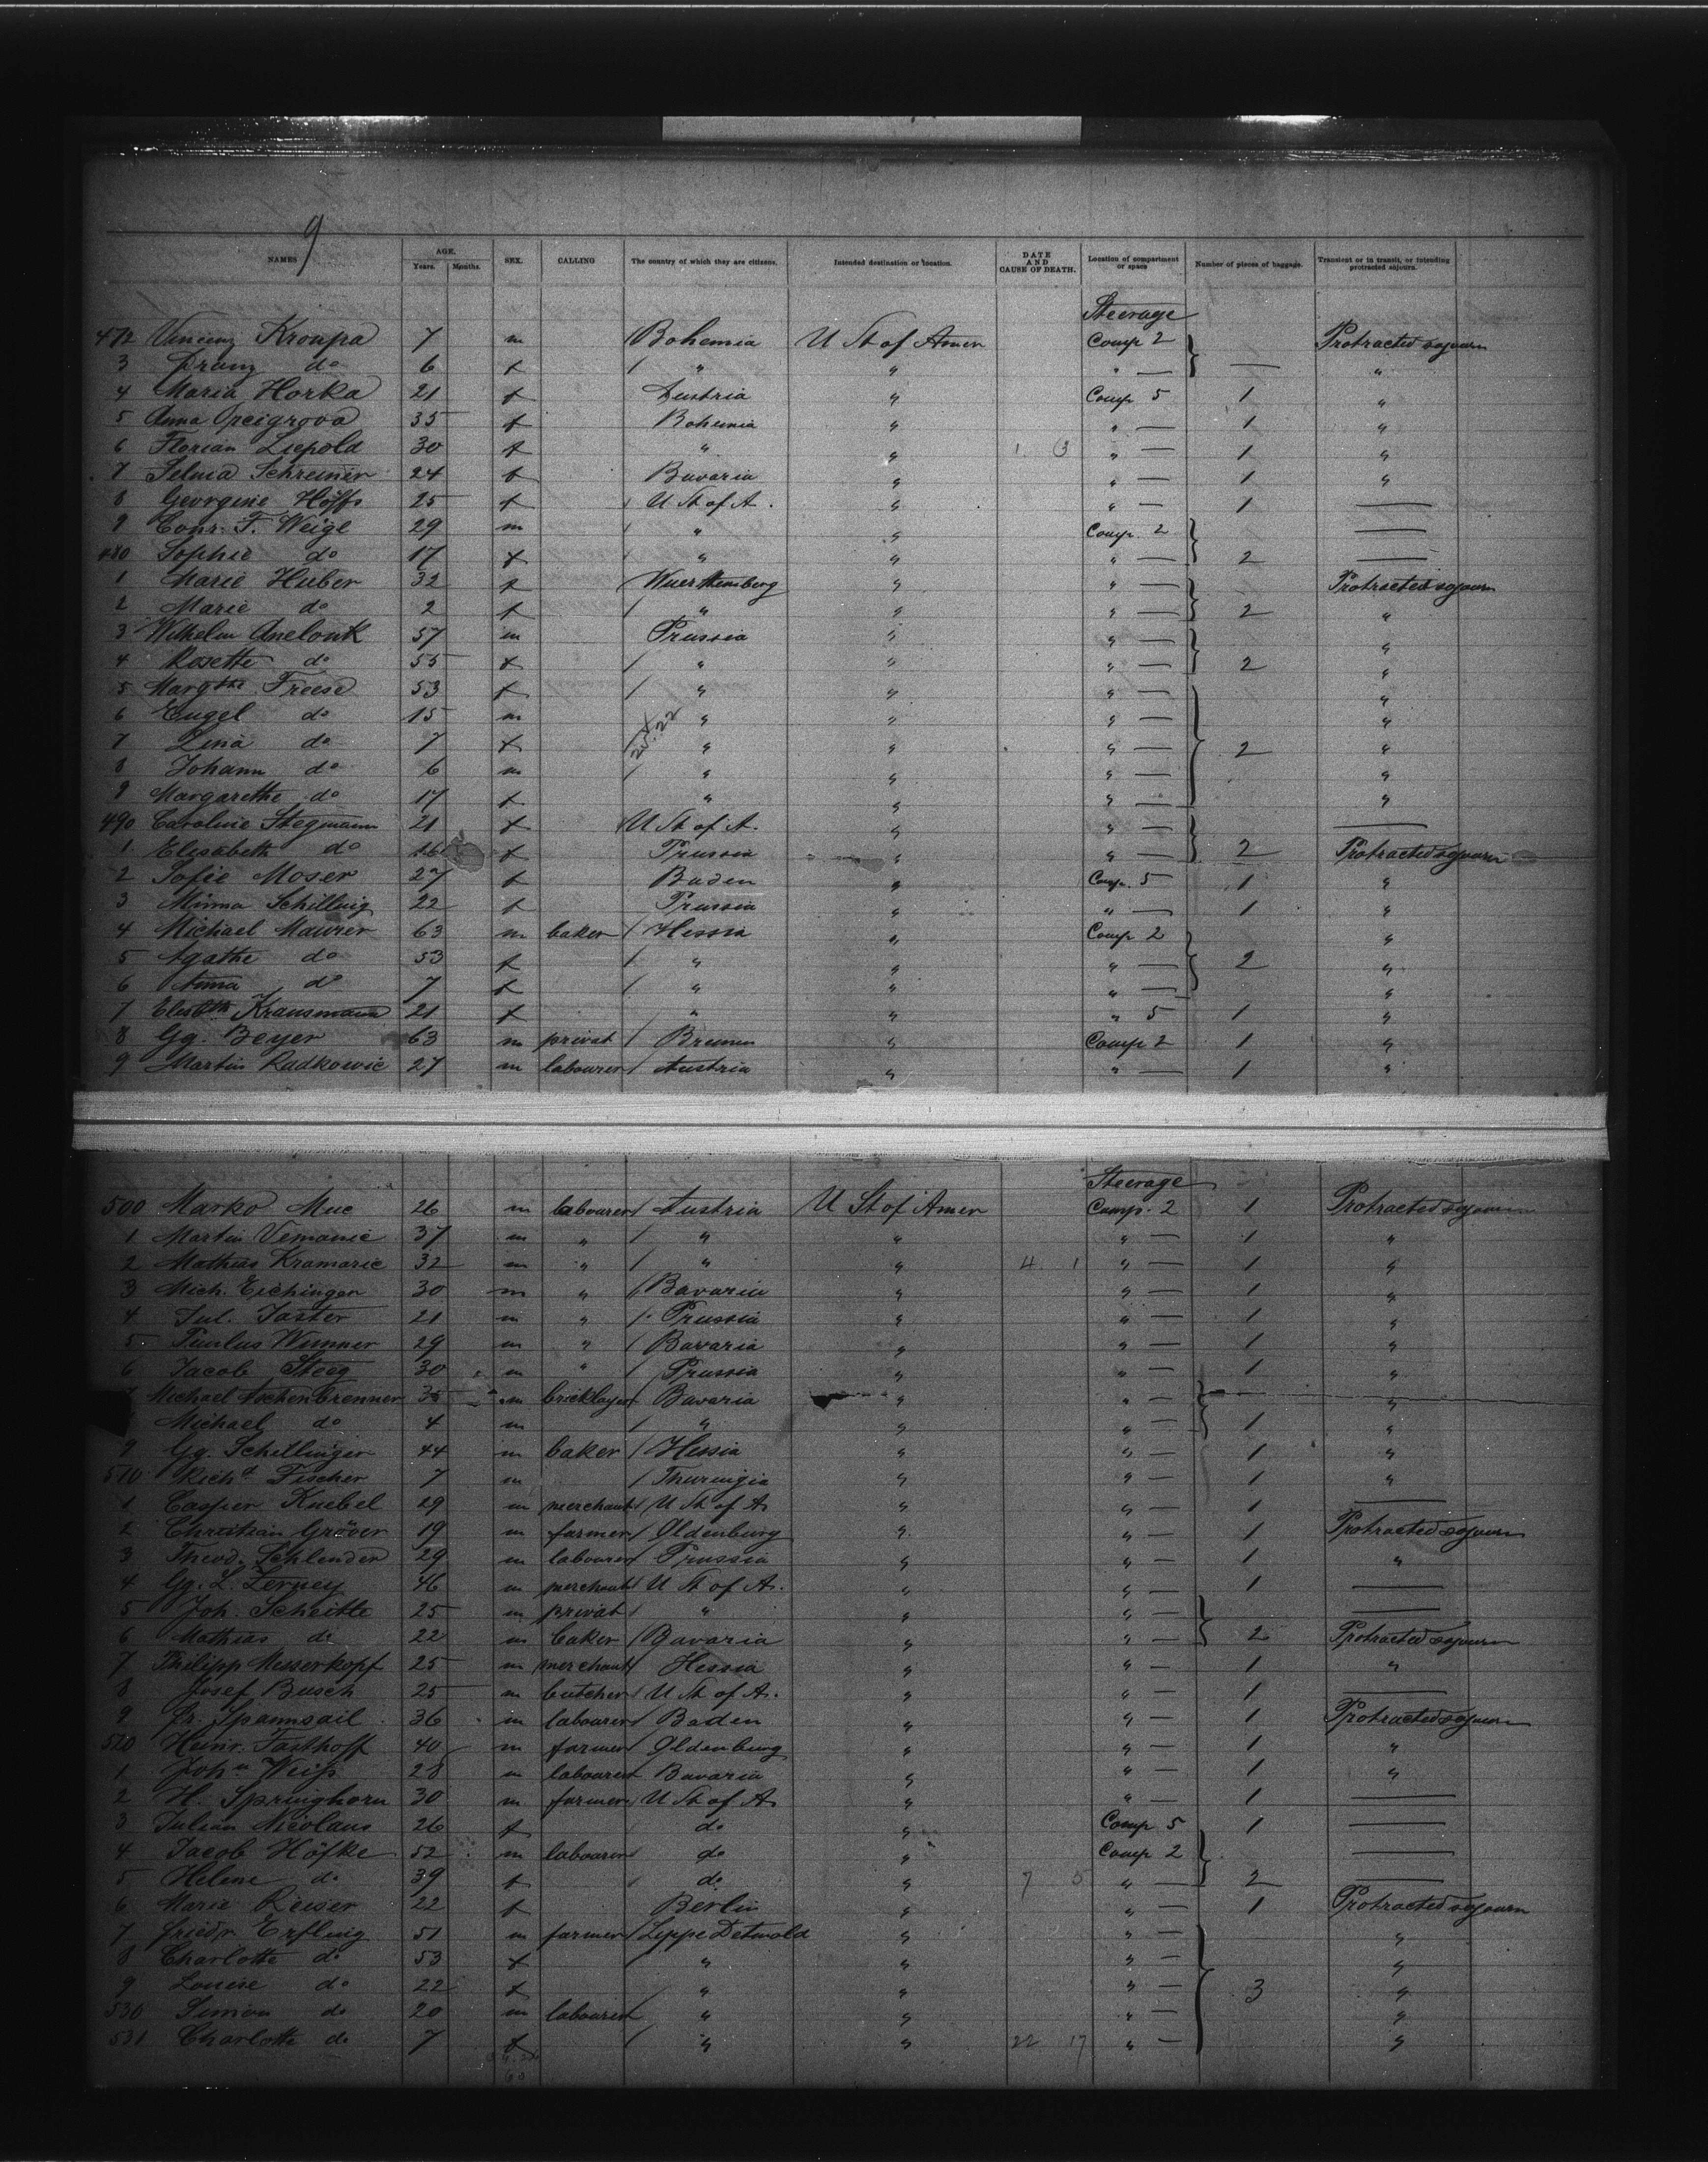 9
NAMES AGE. Years. Months. SEX. CALLING The country of which they are citizens. Intended destination or location. DATE AND CAUSE OF DEATH. Location of compartment or space Number of pieces of baggage. Transient or in transit, or intending protracted sojourn.
Steerage
472 Vincenz Kroupa 7 m Bohemia U St of Amer Comp 2 Protracted sojourn
3 Franz do 6 f " " " — — "
4 Maria Horka 21 f Austria " Comp 5 1 "
5 Anna 35 f Bohemia " " — 1 "
6 Florian Liepold 30 f " " 1 3 " — 1 "
7 Selma Schreiner 24 f Bavaria " " — 1 "
8 Georgine Höffs 25 f U St of A. " " — 1 —
9 Conr. F. Weigl 29 m " " Comp. 2 —
480 Sophie do 17 f " " " — 2 —
1 Marie Huber 32 f Wuerttemberg " " — Protracted sojourn
2 Marie do 2 f " " " — 2 "
3 Wilhelm 57 m Prussia " " — "
4 Rosette do 55 f " " " — 2 "
5 Margthe Freese 53 f " " " — "
6 Engel do 15 m " " " — "
7 Lina do 7 f " " " — 2 "
8 Johann do 6 m " " " — "
9 Margarethe do 17 f " " " — "
490 Caroline Stegmann 21 f U St of A. " " — —
1 Elisabeth do 16 f Prussia " " — 2 Protracted sojourn
2 Sofie Moser 27 f Baden " Comp. 5 1 "
3 Minna Schilling 22 f Prussia " " — 1 "
4 Michael Maurer 63 m baker Hessia " Comp 2 "
5 Agathe do 53 f " " " — 2 "
6 Anna do 7 f " " " — "
7 Elisbth Krausmann 21 f " " " 5 1 "
8 Gg. Beyer 63 m privat Bremen " Comp 2 1 "
9 Martin Radkowic 27 m labourer Austria " " — 1 "
Steerage
500 Marko Muc 26 m labourer Austria U St of Amer Comp. 2 1 Protracted sojourn
1 Martin Vemanic 37 m " " " " — 1 "
2 Mathias Kramaric 32 m " " " 4 1 " — 1 "
3 Mich. Eichinger 30 m " Bavaria " " — 1 "
4 Jul. Jaster 21 m " Prussia " " — 1 "
5 Paulus Wimmer 29 m " Bavaria " " — 1 "
6 Jacob Steeg 30 m " Prussia " " — 1 "
7 Michael Aschenbrenner 35 m bricklayer Bavaria " " — "
Michael do 4 m " " " — 1 "
9 Gg. Schillinger 44 m baker Hessia " " — 1 "
510 Richd Fischer 7 m Thuringia " " — 1 "
1 Casper Knebel 29 m merchant U St of A. " " — 1 —
2 Christian Gröver 19 m farmer Oldenburg " " — 1 Protracted sojourn
3 Theod. Schlender 29 m labourer Prussia " " — 1 "
4 Gg. L. 46 m merchant U St of A. " " — 1 —
5 Joh. Scheitle 25 m privat " " " — —
6 Mathias do 22 m baker Bavaria " " — 2 Protracted sojourn
7 Philipp Messerkopf 25 m merchant Hessia " " — 1 "
8 Josef Busch 25 m butcher U St of A. " " — 1 —
9 Fr. Spannsail 36 m labourer Baden " " — 1 Protracted sojourn
520 Heinr. Fasthoff 40 m farmer Oldenburg " " — 1 "
1 John Weiss 28 m labourer Bavaria " " — 1 "
2 H. Springhorn 30 m farmer U St of A. " " — 1 —
3 Julian Nicolaus 26 f do " Comp 5 1 —
4 Jacob Höfke 52 m labourer do " Comp 2 —
5 Helene do 39 f do " 7 5 " — 2 —
6 Marie Reiser 22 f Berlin " " — 1 Protracted sojourn
7 Friedr Erfling 51 m farmer Lippe Detmold " " — "
8 Charlotte do 53 f " " " — "
9 Louise do 22 f " " " — 3 "
530 Simon do 20 m labourer " " " — "
531 Charlotte do 7 f " " 22 17 " — "